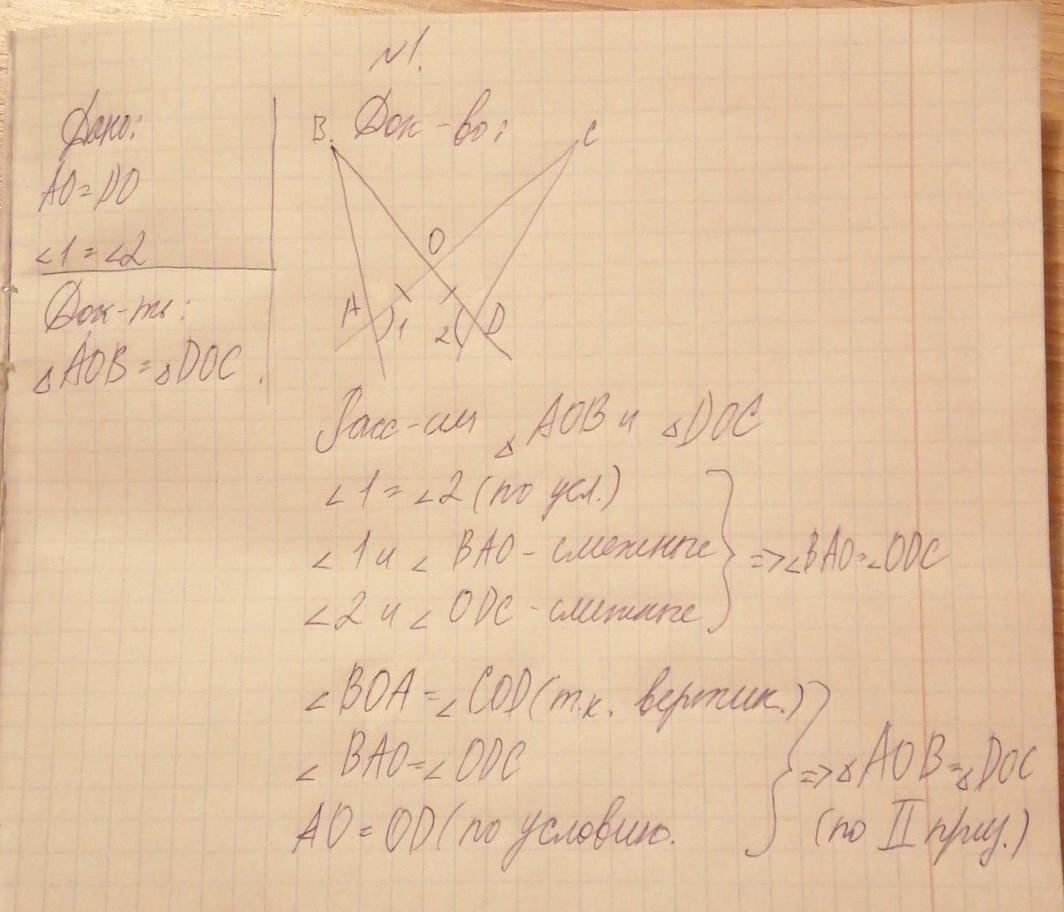 №1.
Дано:
AO=DO
∠1=∠2
Док-ть:
△AOB=△DOC.
Док-во:
B
C
O
A
1
2
D
Расс-им △AOB и △DOC
∠1=∠2 (по усл.)
∠1 и ∠BAO - смежные
∠2 и ∠ODC - смежные
=> ∠BAO=∠ODC
∠BOA=∠COD (т.к. вертик.)
∠BAO=∠ODC
AO=OD (по условию.
=> △AOB=△DOC
(по II приз.)